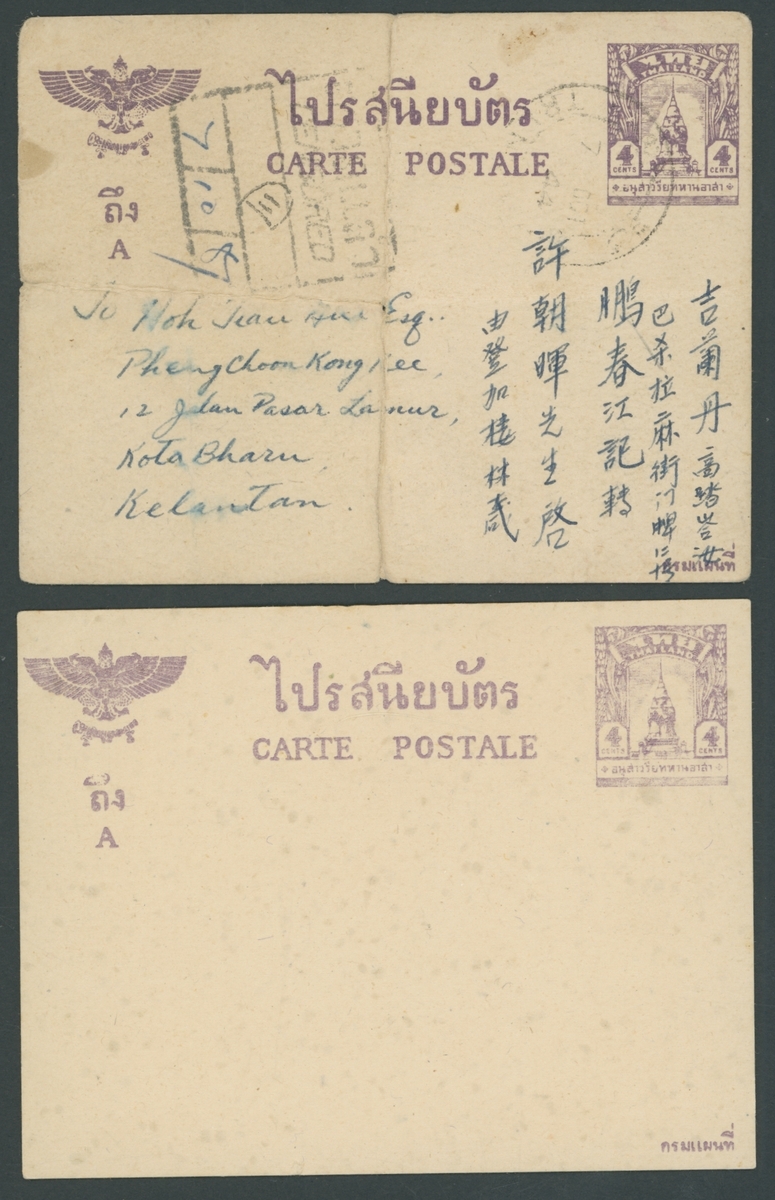 ไปรสนียบัตร
CARTE POSTALE
ถึง
A
ไทย
THAILAND
4 4
CENTS CENTS
อนุสาวรียทหานอาสา
7 10
To Hoh Esq.
Pheng Choon Kong Kee,
12 Jalan Pasar Lamur,
Kota Bharu,
Kelantan.
吉蘭丹
巴杀拉麻街门牌
鹏春江記轉
許朝暉先生啓
由登加楼林
กรมแผนที่
ไปรสนียบัตร
CARTE POSTALE
ถึง
A
ไทย
THAILAND
4 4
CENTS CENTS
อนุสาวรียทหานอาสา
กรมแผนที่